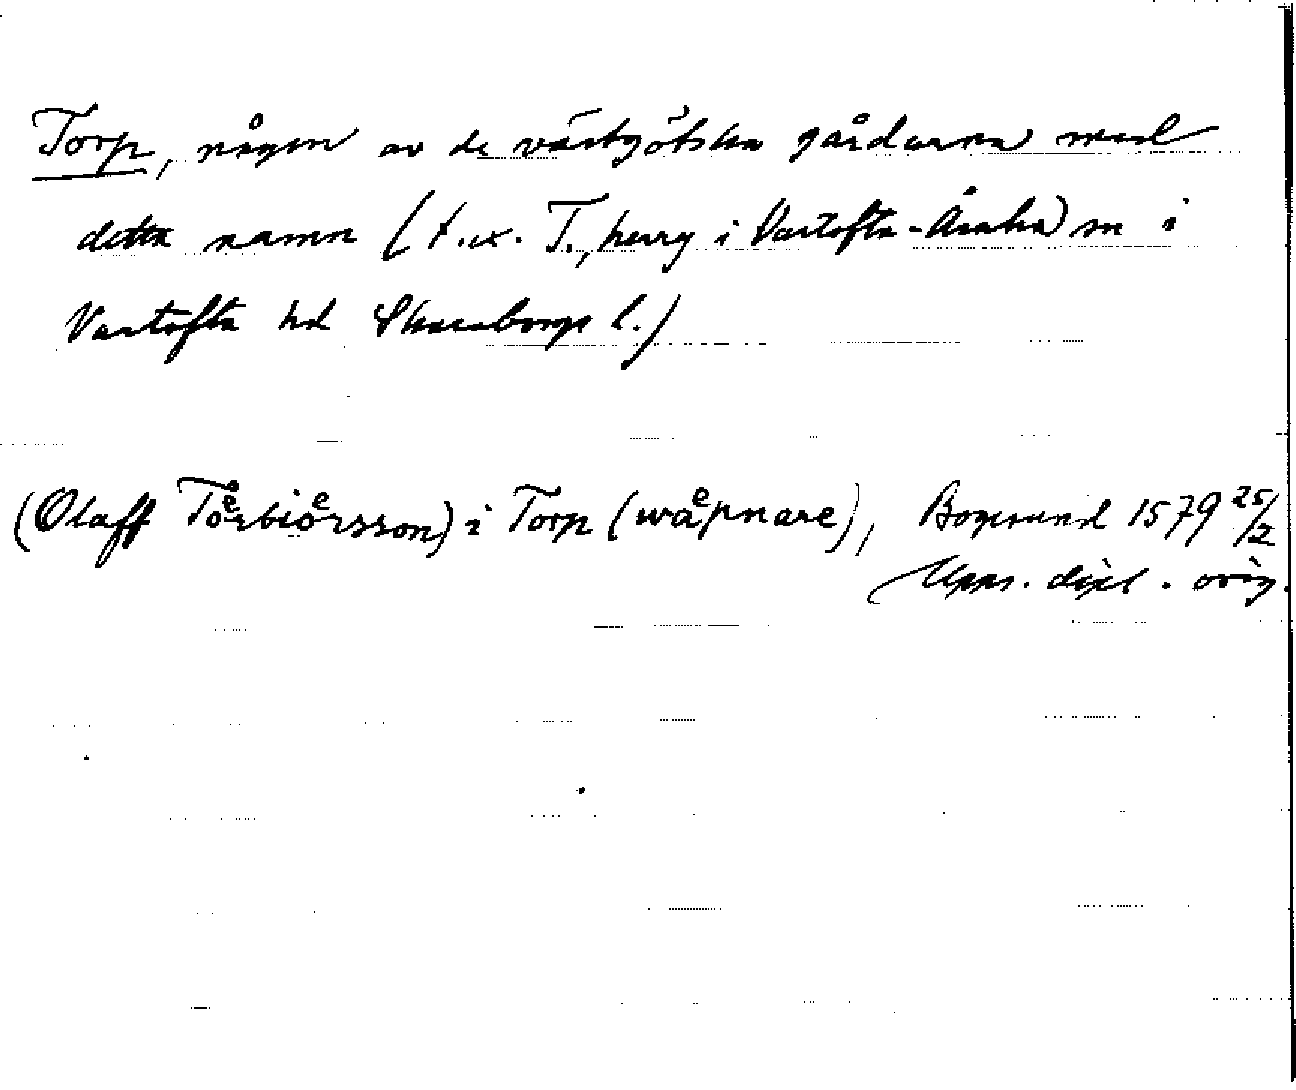 Torp, någon av de västgötska gårdarna med
detta namn (t.ex. T., herrg i Vartofta-Åsaka sn i
Vartofta hd Skaraborgs l.)
(Olaff Toͤrbioͤrsson) i Torp (waͤpnare), Bogesund 1579 25/2
Upps. dipl. orig.